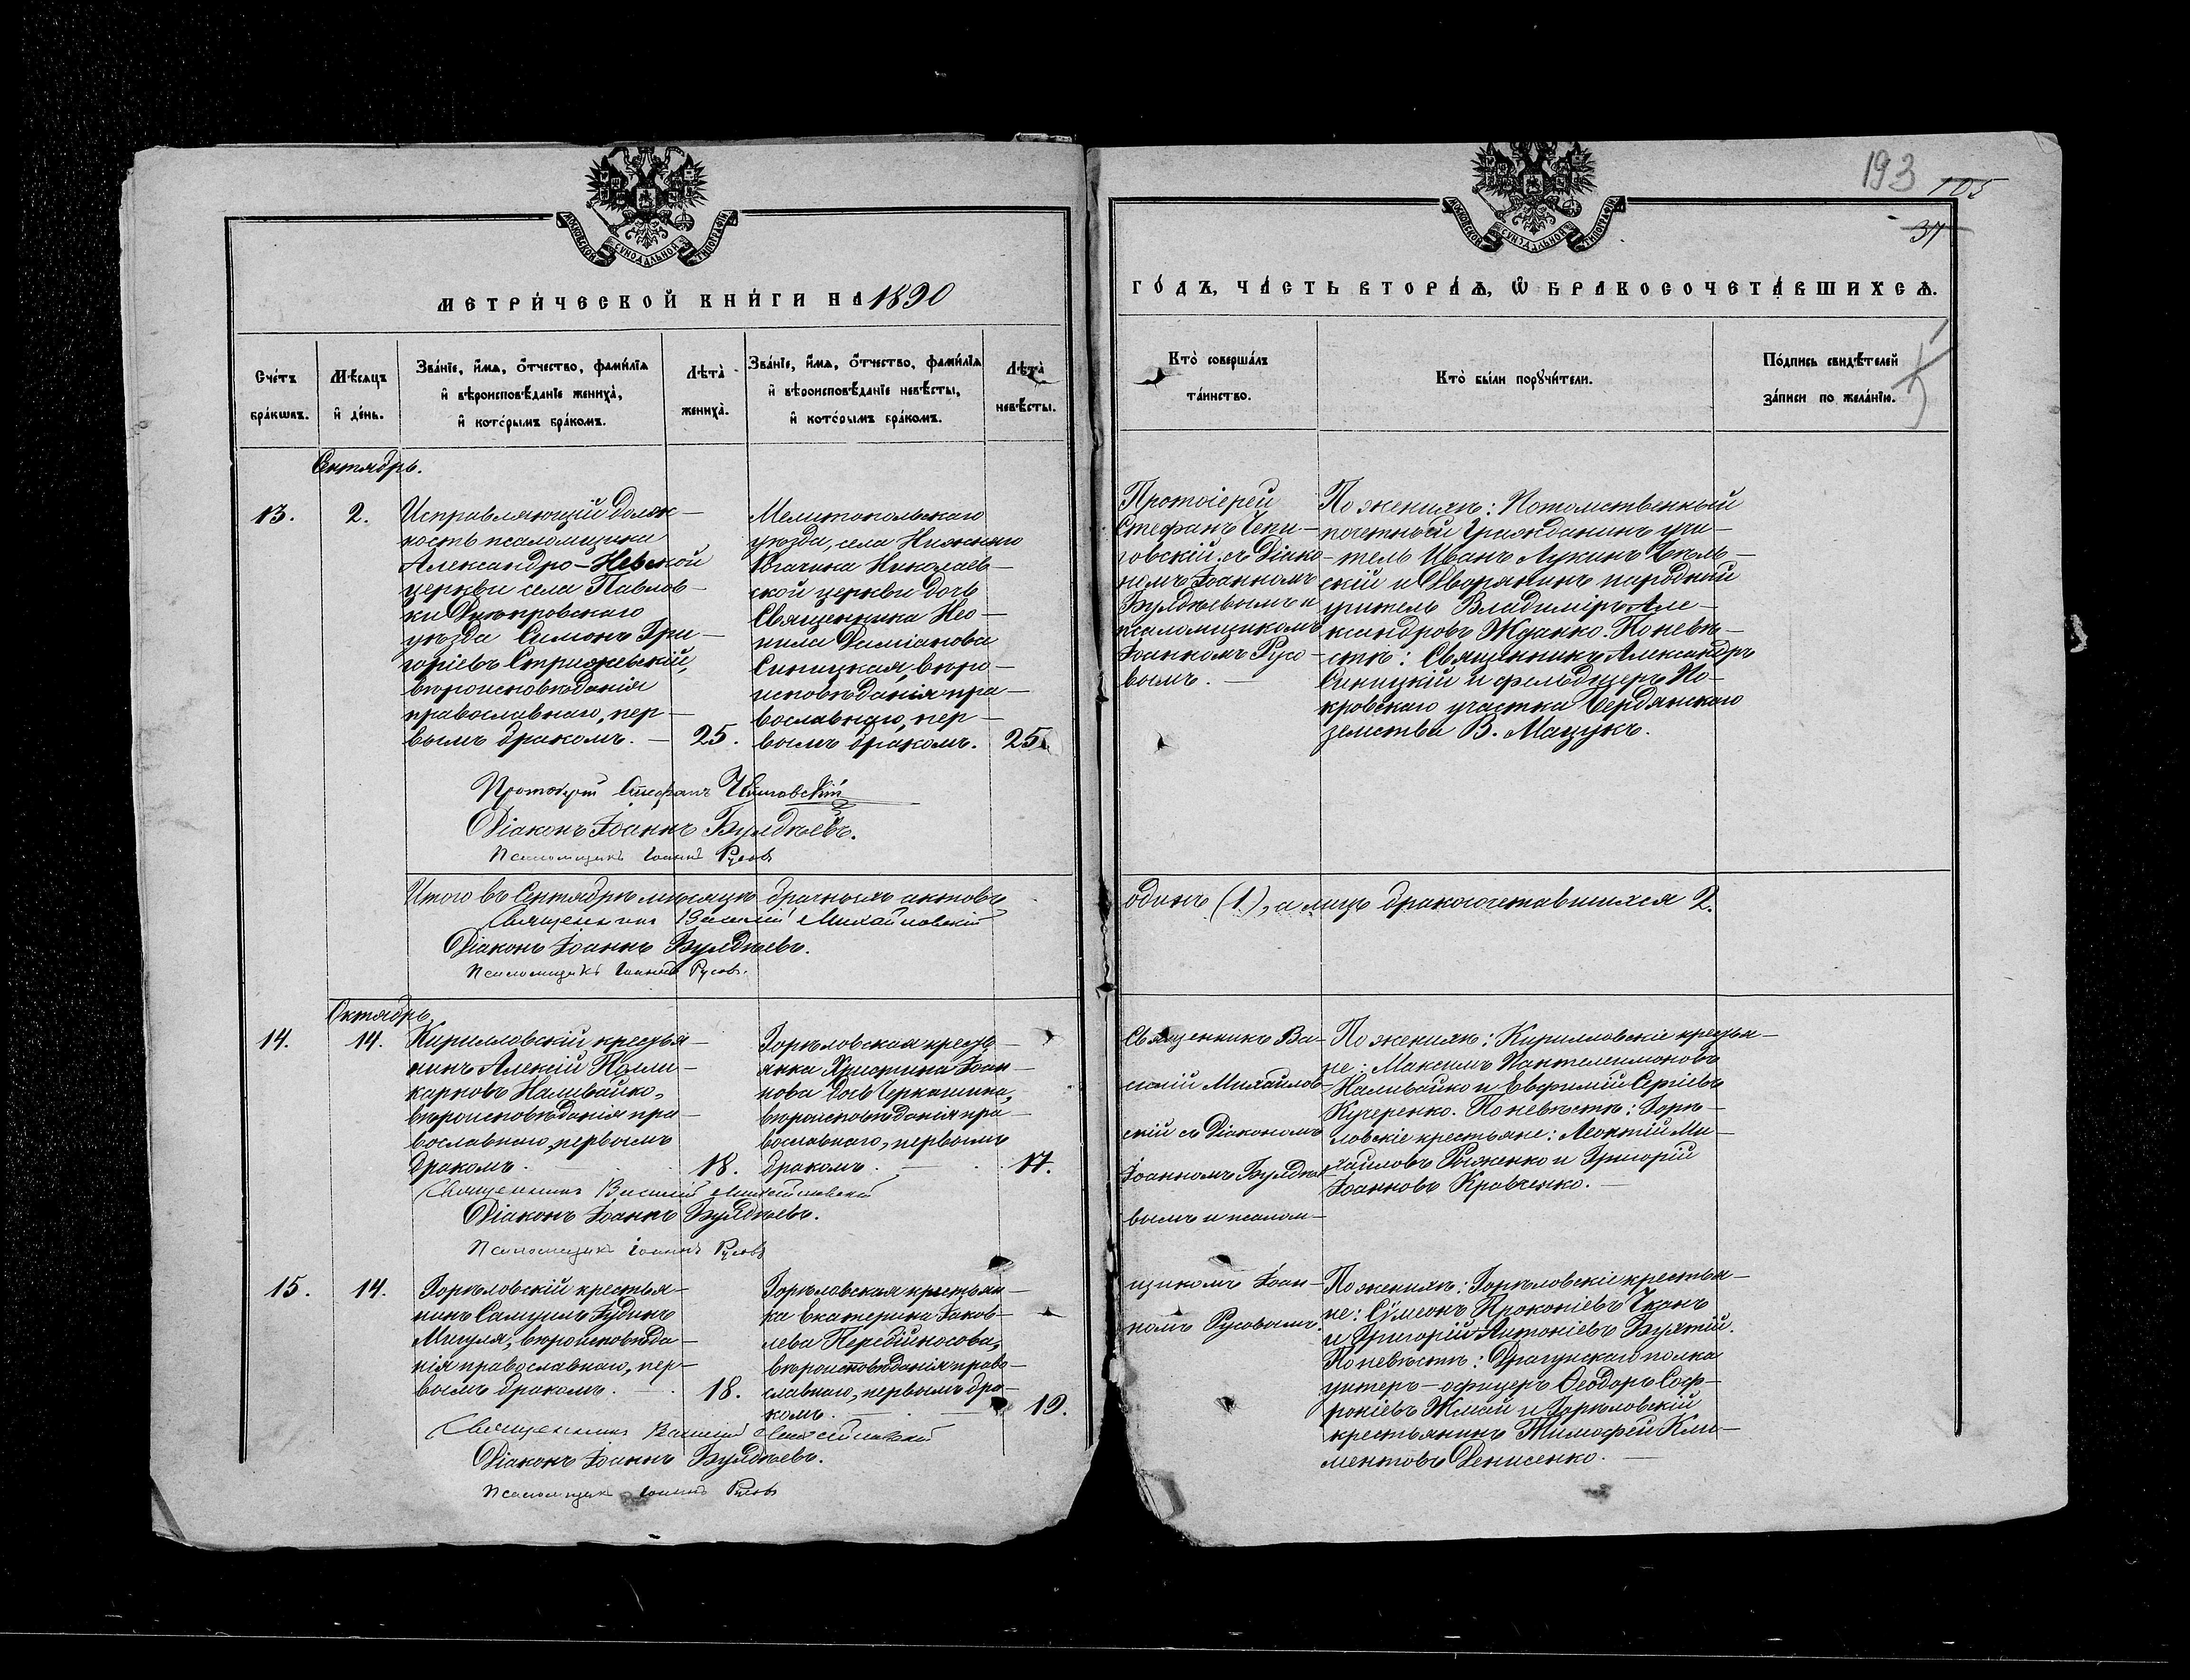 МОСКОВСКОЙ СѴНОДАЛЬНОЙ ТИПОГРАФІИ
МЕТРИ́ЧЕСКОЙ КНИ́ГИ НА 1890
Сче́тъ бра́кѡвъ.
Мѣ́сяцъ и҆ де́нь.
Зва́нїе, и҆́мѧ, ѻ҆́тчество, фами́лїѧ
и҆ вѣроисповѣ́данїе жениха̀,
и҆ кото́рымъ бра́комъ.
Лѣ́та̀ жениха̀.
Зва́нїе, и҆́мѧ, ѻ҆́тчество, фами́лїѧ
и҆ вѣроисповѣ́данїе невѣ́сты,
и҆ кото́рымъ бра́комъ.
Лѣ́та̀ невѣ́сты.
13.
2.
Исправляющій долж-
ность псаломщика
Александро-Невской
церкви села Павлов-
ки Днѣпровскаго
уѣзда Симонъ Гри-
горіевъ Стрижевскій,
вѣроисповѣданія
православнаго, пер-
вымъ бракомъ. —
25.
Мелитопольскаго
уѣзда, села Нижняго
Рогачика Николаев-
ской церкви дочь
Священника Нео-
нила Даміанова
Синицкая, вѣро-
исповѣданія пра-
вославнаго, пер-
вымъ бракомъ.
25
Протоіерей Стефанъ
Діаконъ Іоаннъ Булдѣевъ.
Псаломщикъ Іоаннъ Русовъ
Итого въ Сентябрѣ мѣсяцѣ брачныхъ актовъ
Священникъ Василій Михайловскій
Діаконъ Іоаннъ Булдѣевъ.
Псаломщикъ Іоаннъ Русовъ.
Октябрь
14.
14.
Кирилловскій крестья-
нинъ Алексій Поли-
карповъ Наливайко,
вѣроисповѣданія пра-
вославнаго, первымъ
бракомъ.
18.
Горѣловская кресть-
янка Христина Іоан-
нова дочь Черкашина,
вѣроисповѣданія пра-
вославнаго, первымъ
бракомъ.
17.
Священникъ Василій Михайловскій
Діаконъ Іоаннъ Булдѣевъ.
Псаломщикъ Іоаннъ Русовъ
15.
14.
Горѣловскій крестья-
нинъ Самуилъ Іудинъ
Мигуля, вѣроисповѣда-
нія православнаго, пер-
вымъ бракомъ.
18.
Горѣловская крестьян-
ка Екатерина Іаков-
лева Перебійносова,
вѣроисповѣданія право-
славнаго, первымъ бра-
комъ.
19.
Священникъ Василій Михайловскій
Діаконъ Іоаннъ Булдѣевъ.
Псаломщикъ Іоаннъ Русовъ
193
105
37
МОСКОВСКОЙ СѴНОДАЛЬНОЙ ТИПОГРАФІИ
ГО́ДЪ, ЧА́СТЬ ВТОРА́Ѧ, Ѽ БРАКОСОЧЕТА́ВШИХСѦ.
Кто̀ соверша́лъ
та́инство.
Кто̀ бы́ли порꙋчи́тели.
По́дпись свидѣ́телей
за́писи по жела́нїю.
Протоіерей
Стефанъ
говскій съ Діако-
номъ Іоанномъ
Булдѣевымъ и
псаломщикомъ
Іоанномъ Русо-
вымъ. —
По женихѣ: Потомственный
почетный Гражданинъ учи-
тель Иванъ Лукинъ
скій и Дворянинъ народный
учитель Владиміръ Але-
ксандровъ Жданко. По невѣ-
стѣ: Священникъ Александръ
Синицкій и фельдшеръ По-
кровскаго участка Бердянскаго
земства В. Мацукъ.
одинъ (1), а лицъ бракосочетавшихся 2.
Священникъ Ва-
силій Михайлов-
скій съ Діакономъ
Іоанномъ Булдѣе-
вымъ и псалом-
щикомъ Іоан-
номъ Русовымъ.
По женихѣ: Кирилловскіе крестья-
не: Максимъ Пантелеимоновъ
Наливайко и Евфимій Сергіевъ
Кучеренко. По невѣстѣ: Горѣ-
ловскіе крестьяне: Леонтій Ми-
хаиловъ Рыженко и Григорій
Іоанновъ Кравченко. —
По женихѣ: Горѣловскіе крестья-
не: Сѵмеонъ Прокопіевъ Ткачъ
и Григорій Антоніевъ
По невѣстѣ: Драгунскаго полка
унтеръ-офицеръ Ѳеодоръ Соф-
роніевъ Жмай и Горѣловскій
крестьянинъ Тимофей Кли-
ментовъ Денисенко. —